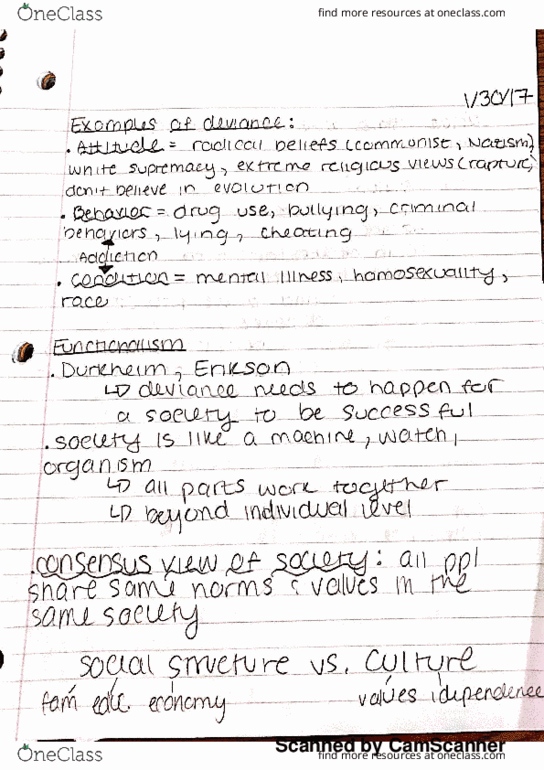 OneClass
find more resources at oneclass.com
1/30/17
Examples of deviance:
. Attitude = radical beliefs (communist, Natism)
white supremacy, extreme religious views (rapture,
don't believe in evolution
. Behavior = drug use, bullying, criminal
behaviors, lying, cheating
Addiction
. condition = mental illness, homosexuality,
race
Functionalism
. Durkheim, Erikson
↳ deviance needs to happen for
a society to be successful
. society is like a machine, watch,
organism
↳ all parts work together
↳ beyond individual level
. consensus view of society: all ppl
share same norms & values in the
same society
social structure vs. culture
fam educ economy values idependence
Scanned by CamScanner
OneClass
find more resources at oneclass.com